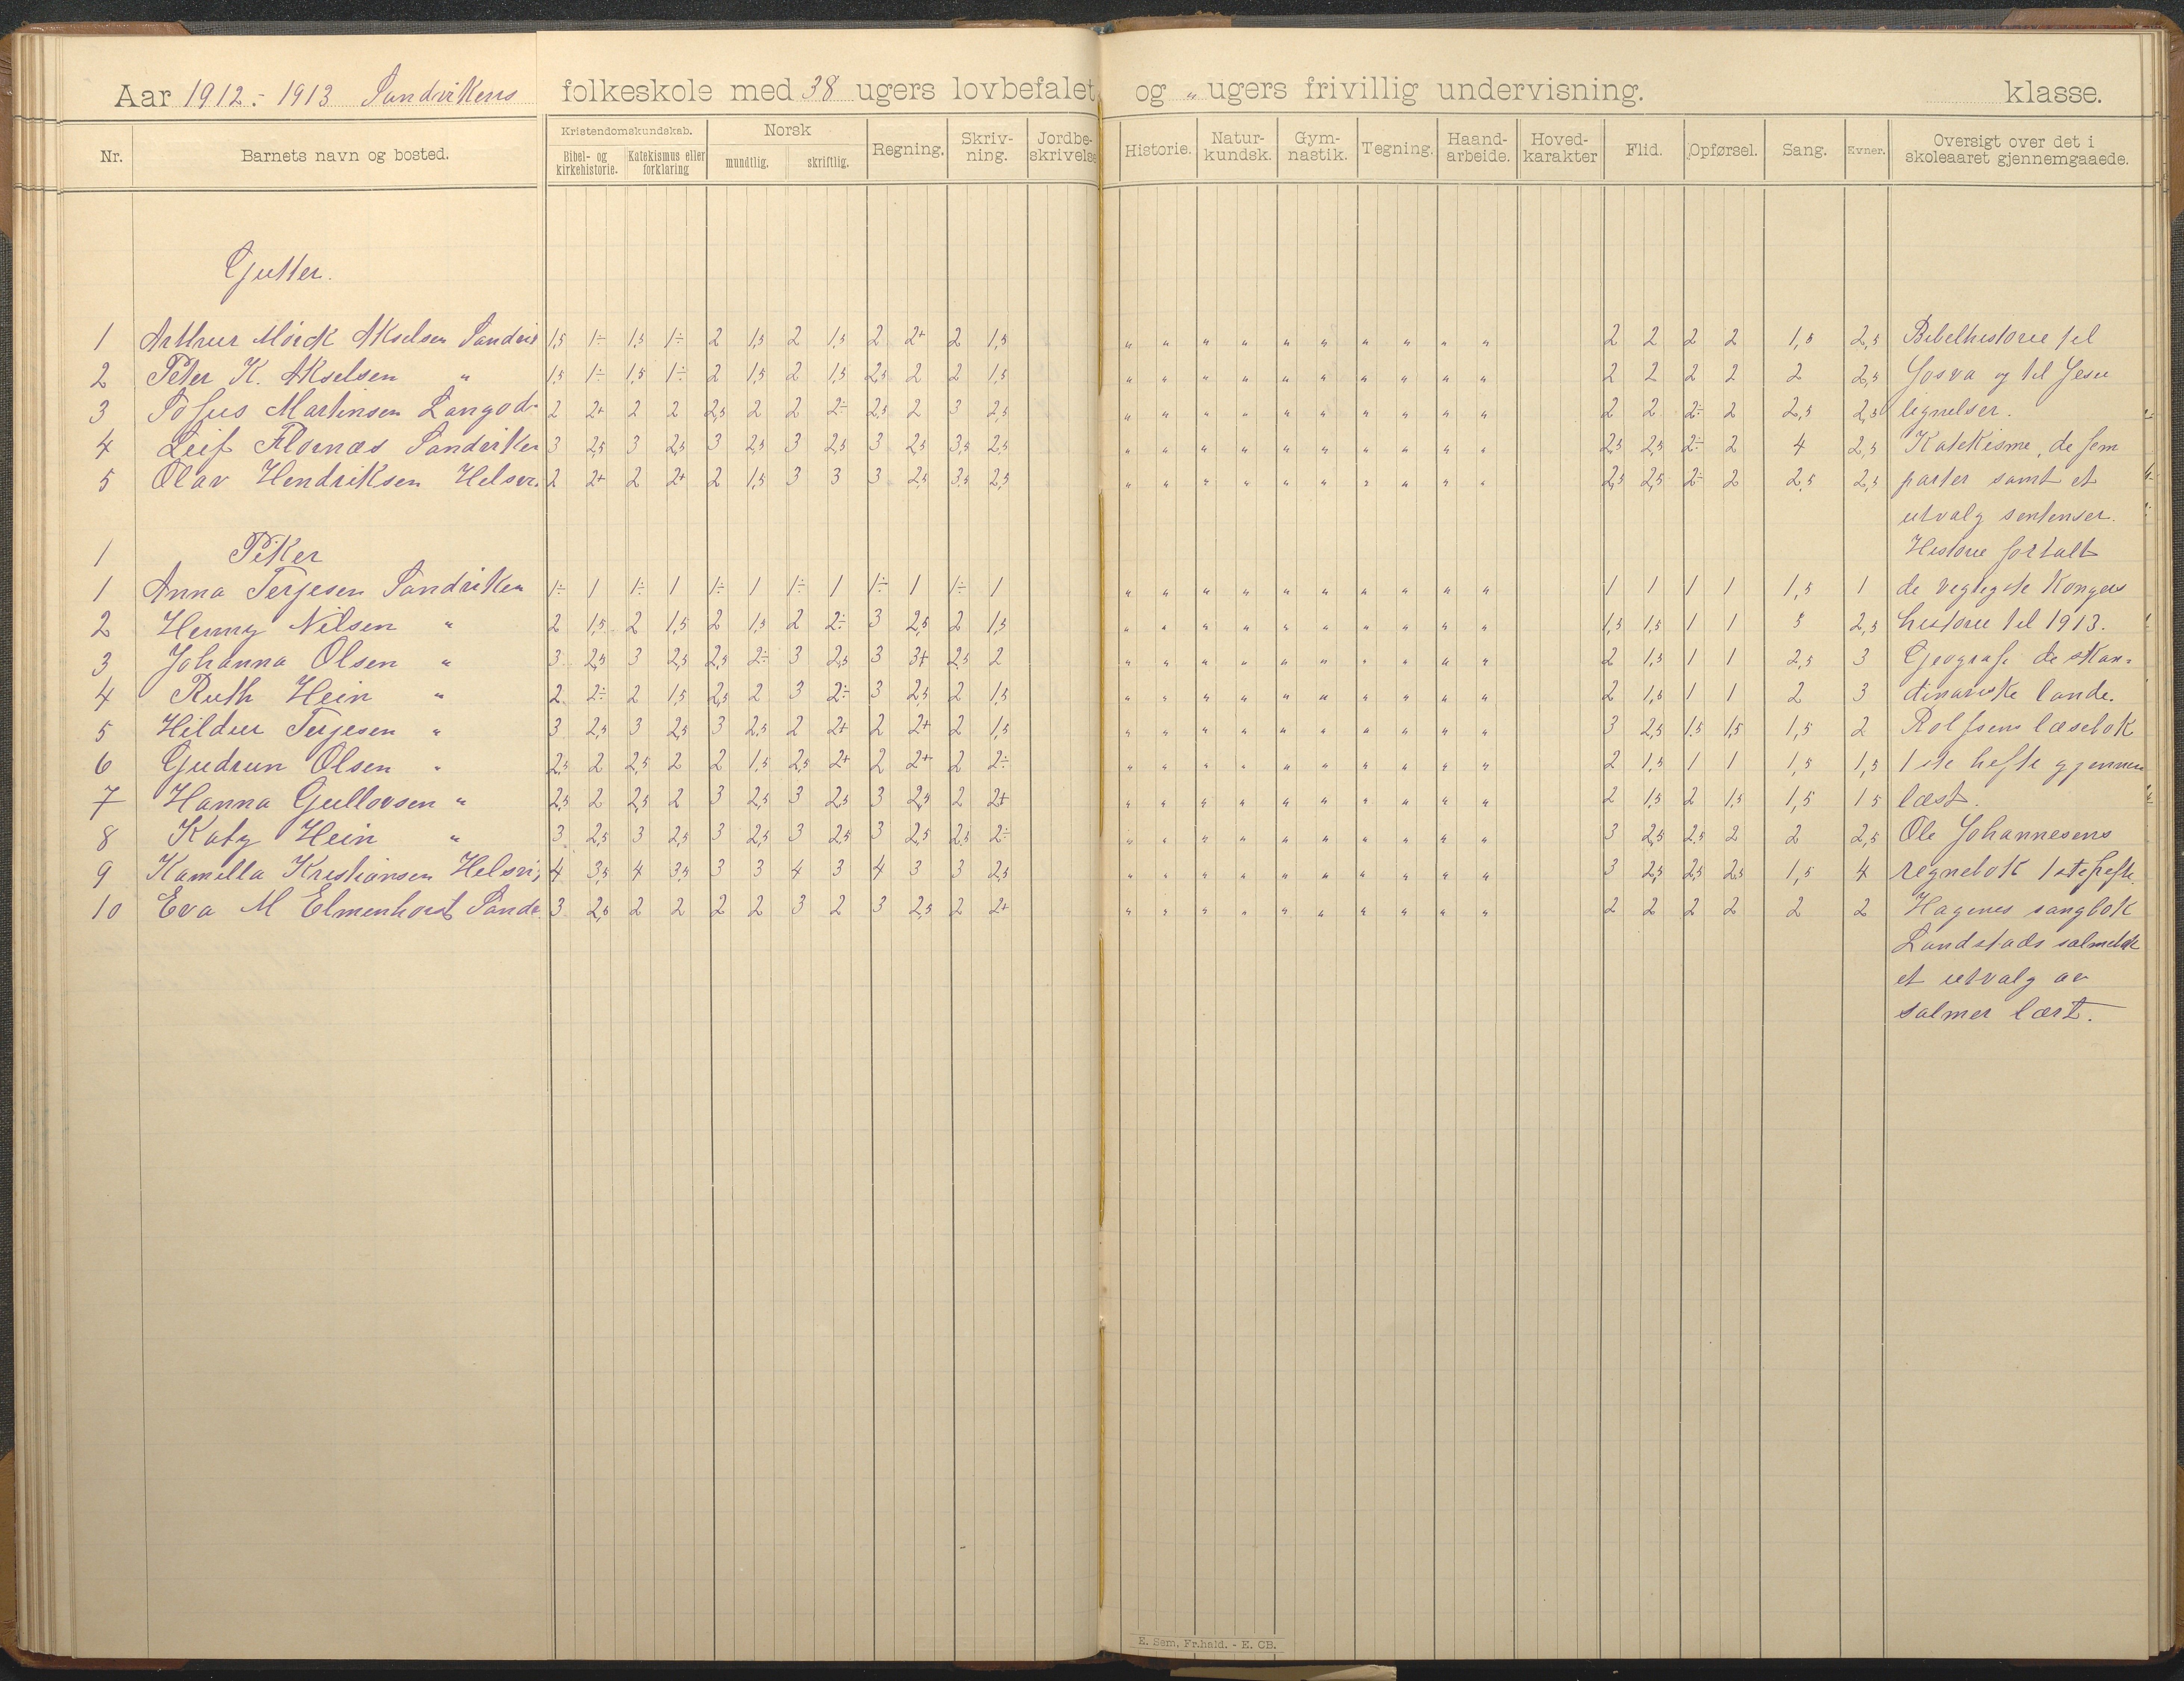 Aar 1912.- 1913 Sandvikens folkeskole med 38 ugers lovbefalet og " ugers frivillig undervisning. klasse.
Nr. Barnets navn og bosted. Kristendomskundskab. Bibel- og kirkehistorie. Katekismus eller forklaring Norsk mundtlig. skriftlig. Regning. Skriv-ning. Jordbe-skrivelse Historie. Natur-kundsk. Gym-nastik. Tegning. Haand-arbeide. Hoved-karakter Flid. Opførsel. Sang. Evner. Oversigt over det i skoleaaret gjennemgaaede.
Gutter.
1 Arthur Mörck Akselsen Sandvik 1,5 1÷ 1,5 1÷ 2 1,5 2 1,5 2 2+ 2 1,5 " " " " " " " " " " 2 2 2 2 1,5 2,5 Bibelhistorie til
2 Peter K. Akselsen " 1,5 1÷ 1,5 1÷ 2 1,5 2 1,5 2,5 2 2 1,5 " " " " " " " " " " 2 2 2 2 2 2,5 Josva og til Jesu
3 Tofus Martinsen Langod. 2 2+ 2 2 2,5 2 2 2÷ 2,5 2 3 2,5 " " " " " " " " " " 2 2 2÷ 2 2,5 2,5 lignelser.
4 Leif Flornæs Sandviken 3 2,5 3 2,5 3 2,5 3 2,5 3 2,5 3,5 2,5 " " " " " " " " " " 2,5 2,5 2÷ 2 4 2,5 Katekisme, de fem
5 Olav Hendriksen Helsv. 2 2+ 2 2+ 2 1,5 3 3 3 2,5 3,5 2,5 " " " " " " " " " " 2,5 2,5 2÷ 2 2,5 2,5 parter samt et
utvalg sentenser.
1 Piker Historie fortalt
1 Anna Terjesen Sandviken 1÷ 1 1÷ 1 1÷ 1 1÷ 1 1÷ 1 1÷ 1 " " " " " " " " " " 1 1 1 1 1,5 1 de vegtigste Kongers
2 Henny Nilsen " 2 1,5 2 1,5 2 1,5 2 2÷ 3 2,5 2 1,5 " " " " " " " " " " 1,5 1,5 1 1 3 2,5 historie til 1913.
3 Johanna Olsen " 3 2,5 3 2,5 2,5 2÷ 3 2,5 3 3+ 2,5 2 " " " " " " " " " " 2 1,5 1 1 2,5 3 Geografi de skan-
4 Ruth Hein " 2 2÷ 2 1,5 2,5 2 3 2÷ 3 2,5 2 1,5 " " " " " " " " " " 2 1,5 1 1 2 3 dinaviske lande.
5 Hildur Terjesen " 3 2,5 3 2,5 3 2,5 2 2+ 2 2+ 2 1,5 " " " " " " " " " " 3 2,5 1,5 1,5 1,5 2 Rolfsens læsebok
6 Gudrun Olsen " 2,5 2 2,5 2 2 1,5 2,5 2+ 2 2+ 2 2÷ " " " " " " " " " " 2 1,5 1 1 1,5 1,5 1ste hefte gjennem
7 Hanna Gullovsen " 2,5 2 2,5 2 3 2,5 3 2,5 3 2,5 2 2+ " " " " " " " " " " 2 1,5 2 1,5 1,5 1,5 læst.
8 Katy Hein " 3 2,5 3 2,5 3 2,5 3 2,5 3 2,5 2,5 2÷ " " " " " " " " " " 3 2,5 2,5 2 2 2,5 Ole Johannesens
9 Kamilla Kristiansen Helsvi, 4 3,5 4 3,5 3 3 4 3 4 3 3 2,5 " " " " " " " " " " 3 2,5 2,5 2,5 1,5 4 regnebok 1ste hefte.
10 Eva M Elmenhorst Sandv 3 2,5 2 2 2 2 3 2 3 2,5 2 2+ " " " " " " " " " " 2 2 2 2 2 2 Hagenes sangbok
Landstads salmebok
et utvalg av
salmer lært.
E. Sem, Fr.hald. - E. CB.